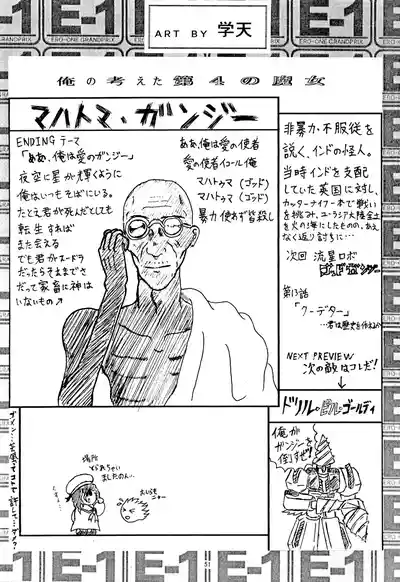 E-1
ERO-ONE GRANDPRIX
ART BY 学天
俺の考えた第4の魔女
マハトマ・ガンジー
ENDINGテーマ
「ああ、俺は愛のガンジー」
夜空に星が輝くように
俺はいつもそばにいる。
たとえ君が死んだとしても
転生すれば
また会える
でも君がスードラ
だったらそのままでさ
だって家畜に神は
いないもの
ああ、俺は愛の使者
愛の使者イコール俺
マハトゥマ(ゴッド)
マハトゥマ(ゴッド)
暴力使わず皆殺し
非暴力・不服従を
説く、インドの怪人。
当時インドを支配
していた英国に対し、
カッターナイフ一本で戦い
を挑み、ユーラシア大陸全土
を火の海にしたものの、あえ
なく返り討ちに…
次回 流星ロボ
ゴッドガンジー
第13話
「クーデター」
NEXT PREVIEW
次の敵はコレだ!
ドリル・ビル・ゴールディ
俺が
ガンジーを
倒すぜ!
場所
とりあちゃい
ましたのん…
51